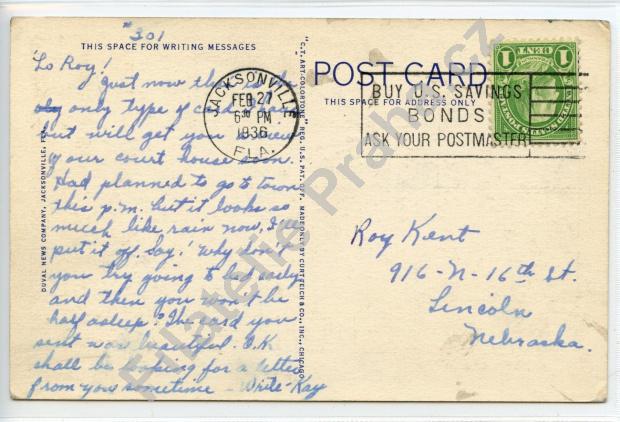 #301
THIS SPACE FOR WRITING MESSAGES
'Lo Roy!
Just now this is the
only type of card I have
but will get you a view
of your court house soon.
Had planned to go to town
this p.m. but it looks so
much like rain now, I'll
put it off. Say! Why don't
you try going to bed early
and then you won't be
half asleep? The card you
sent was beautiful. O.K
shall be looking for a letter
from you sometime - Write - Kay
DUVAL NEWS COMPANY, JACKSONVILLE, FLA.
"C.T. ART-COLORTONE" REG. U.S. PAT. OFF. MADE ONLY BY CURT TEICH & CO., INC., CHICAGO
POST CARD
THIS SPACE FOR ADDRESS ONLY
JACKSONVILLE
FEB 27
6 PM
1936
FLA.
BUY U.S. SAVINGS
BONDS
ASK YOUR POSTMASTER
1 CENT 1
Roy Kent
916-N-16th St.
Lincoln
Nebraska.
Filatelie Praha.cz